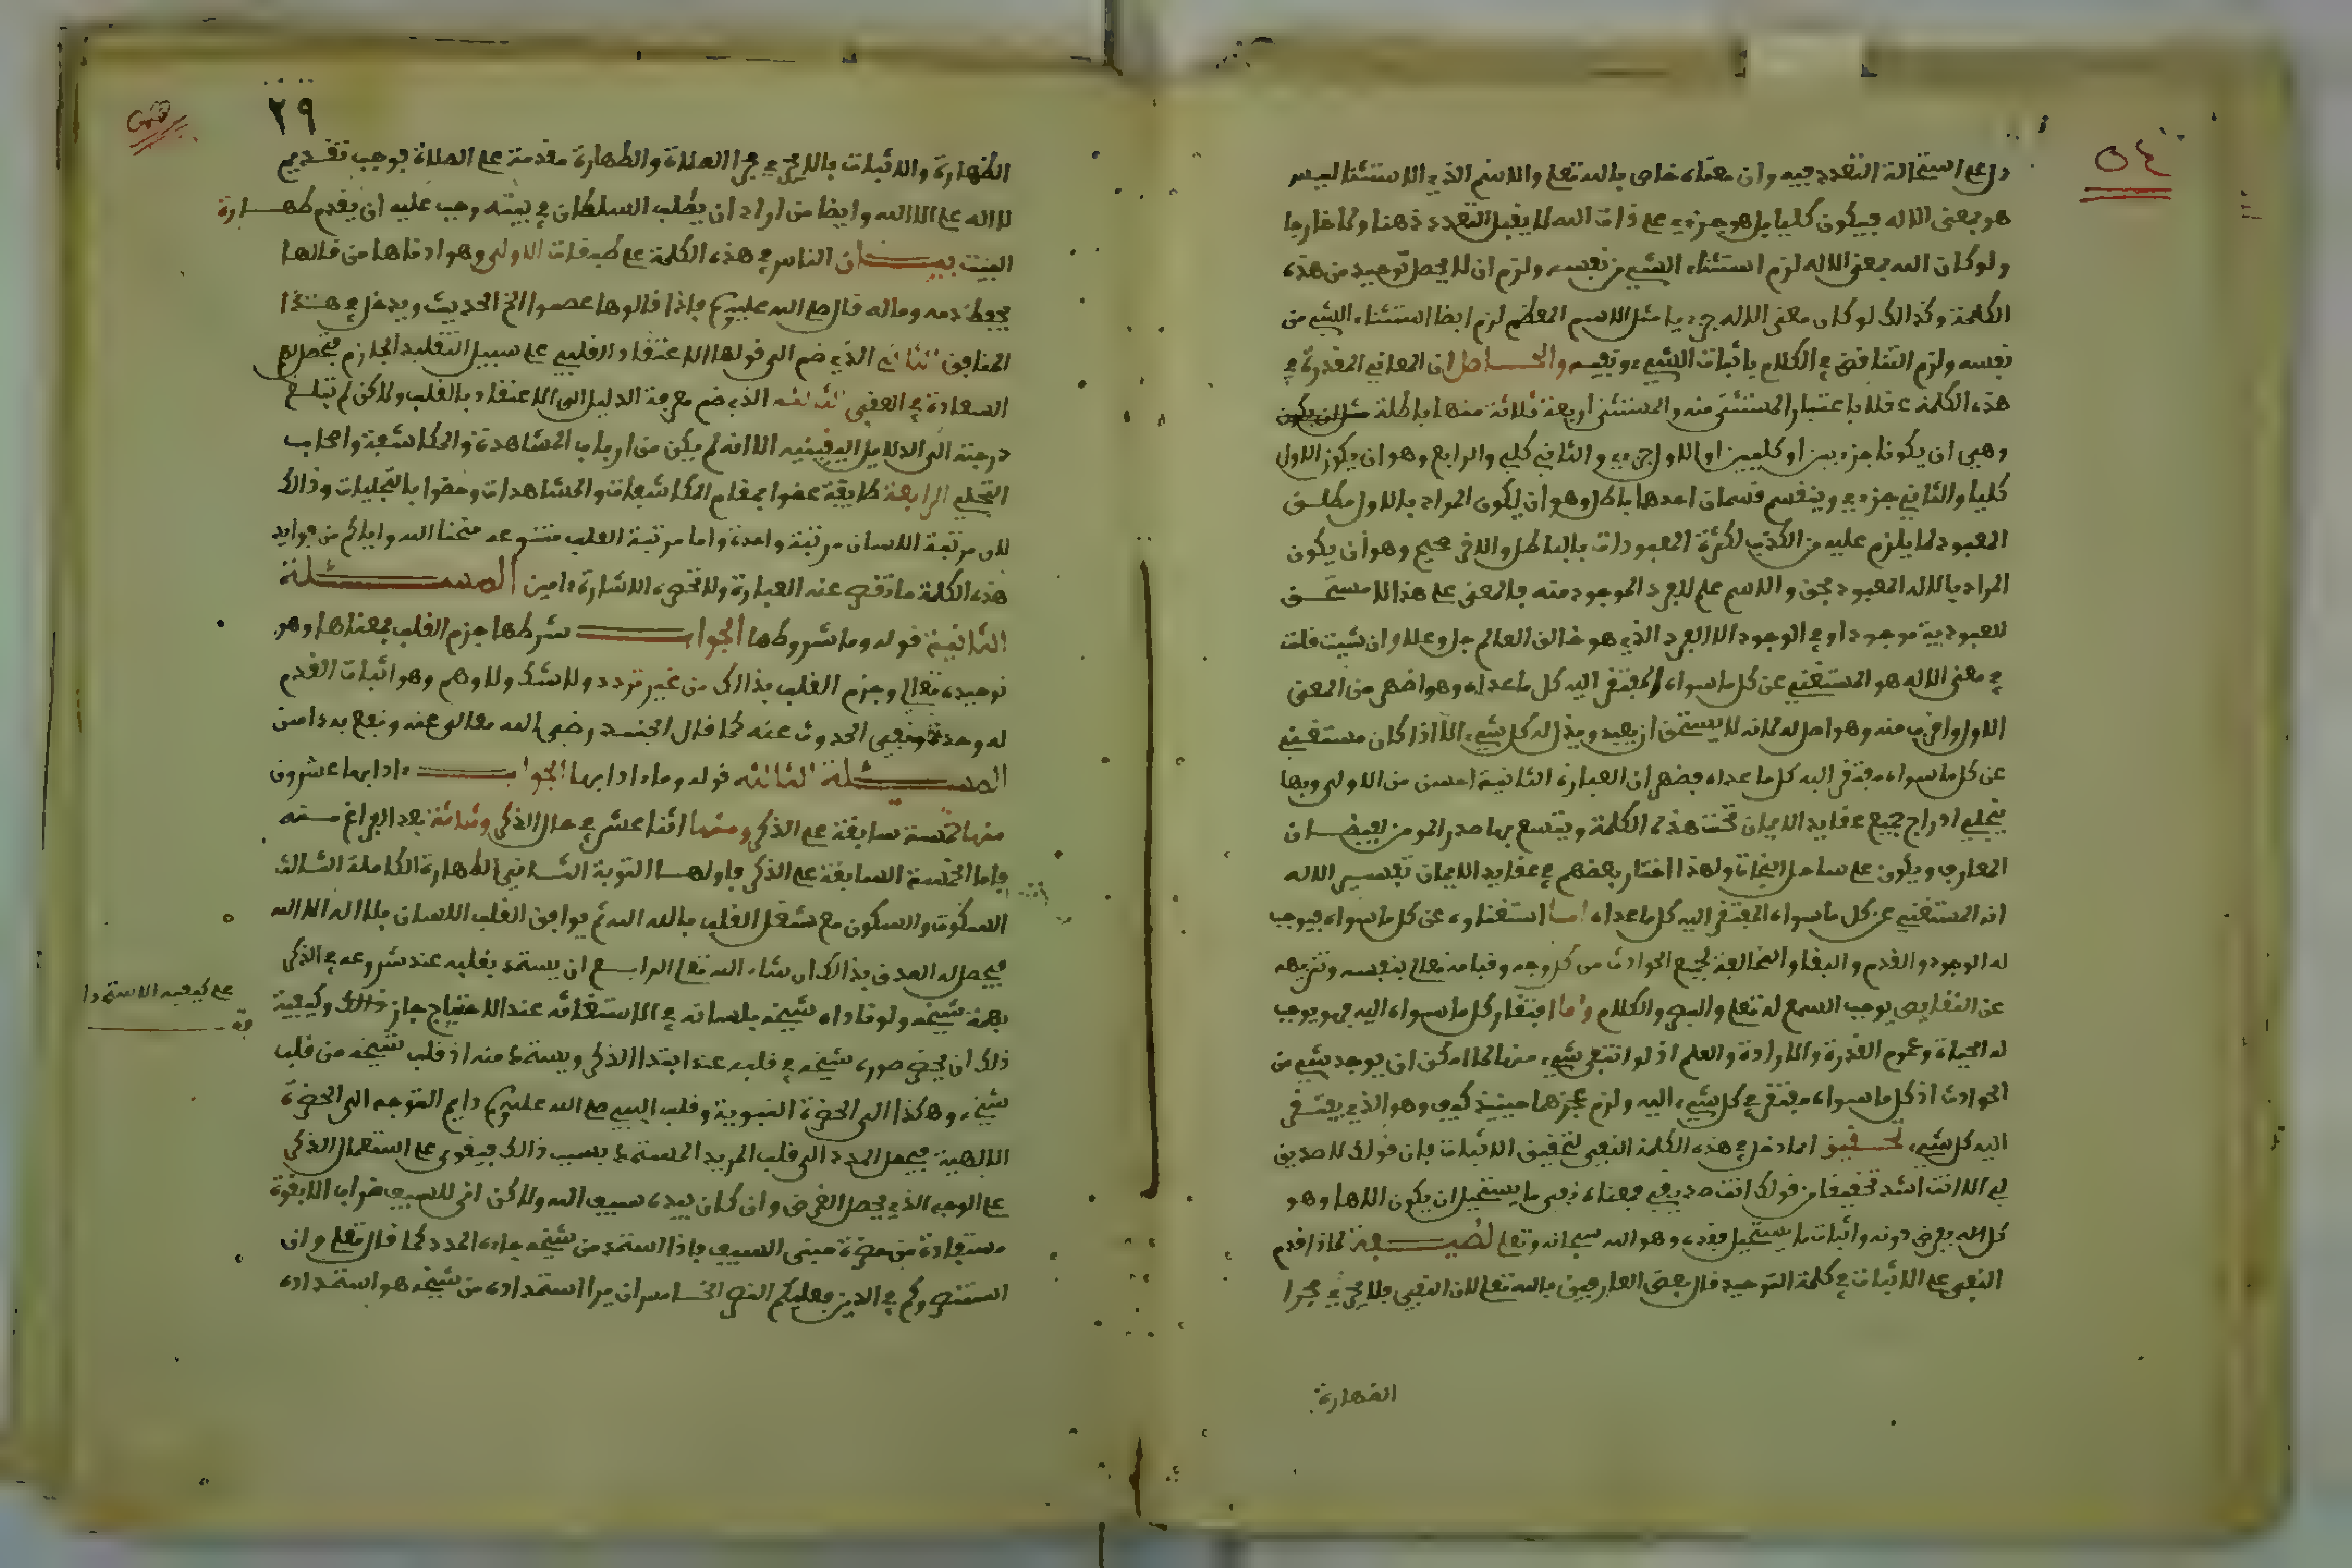 ٥٤
دل على استحالة التعدد فيه وان معناه خاص بالله تعلى والاسم الذي الاستثنا ليس
هو بمعنى الاله فيكون كليا بل هو جزءي على ذات الله لا يقبل التعدد ذهنا ولا خارجا
ولو كان الله بمعنى الاله لزم استثناء الشيء من نفسه ولزم ان لا يحصل توحيد من هذه
الكلمة وكذالك لو كان معنى الاله جزءيا مثل الاسم المعظم لزم ايضا استثناء الشيء من
نفسه ولزم التناقض في الكلام باثبات الشيء ونفيه والحاصل ان المعاني المقدرة في
هذه الكلمة عقلا باعتبار المستثنى منه والمستثنى اربعة ثلاثة منها باطلة
وهي ان يكونا جزءيين او كليين او الاول جزءي والثاني كلي والرابع وهو ان يكون الاول
كليا والثاني جزءي وينقسم قسمان احدها باطل وهو ان يكون المراد بالاول مطلق
المعبود لما يلزم عليه من الكذب لكثرة المعبودات بالباطل والاخر صحيح وهو ان يكون
المراد بالاله المعبود بحق والاسم علم للفرد الموجود منه فالمعنى على هذا لا مستحق
للعبودية موجود او في الوجود الا الفرد الذي هو خالق العالم جل وعلا وان شيت قلت
في معنى الاله هو المستغني عن كل ما سواه المفتقر اليه كل ما عداه وهو اظهر من المعنى
الاول واقرب منه وهو اصل له لانه لا يستحق ان يعبد ويذل له كل شيء الا اذا كان مستغني
عن كل ما سواه مفتقر اليه كل ما عداه فظهر ان العبارة الثانية احسن من الاولى وبها
ينجلي ادراج جميع عقايد الايمان تحت هذه الكلمة ويتسع بها صدر المومن لفيضان
المعارف ويكون على ساحل النجاة ولهذا اختار بعضهم في عقايد الايمان تفسير الاله
انه المستغني عن كل ما سواه المفتقر اليه كل ما عداه اما استغناوه عن كل ما سواه فيوجب
له الوجود والقدم والبقا والمخالفة لجميع الحوادث من كل وجه وقيامه تعالى بنفسه وتنزيهه
عن النقايص يوجب السمع له تعلى والبصر والكلام واما افتقار كل ما سواه اليه فهو يوجب
له الحياة وعموم القدرة والارادة والعلم اذ لو انتفى شيء منها لما امكن ان يوجد شيء من
الحوادث اذ كل ما سواه مفتقر في كل شيء اليه ولزم عجزها حينيذ كيف وهو الذي يفتقر
اليه كل شيء تحقيق انما دخل في هذه الكلمة النفي لتحقيق الاثبات فان قولك لا صديق
لي الا انت اشد تحقيقا من قولك انت صديقي فمعناه نفي ما يستحيل ان يكون الاها وهو
كل اله يفرض دونه واثبات ما يستحيل فقده وهو الله سبحانه وتعلى لطيفة لماذا قدم
النفي على الاثبات في كلمة التوحيد قال بعض العارفين بالله تعلى لان النفي بلا يجري مجرا
الطهارة
٢٩
الطهارة والاثبات بالا يجري مجرا الصلاة والطهارة مقدمة على الصلاة فوجب تقديم
لا اله على الا الله وايضا من اراد ان يطلب السلطان في بيته وجب عليه ان يقدم طهارة
البيت بيان الناس في هذه الكلمة على طبقات الاولى وهو ادناها من قالها
يحفظ دمه وماله قال صلى الله عليه وسلم فاذا قالوها عصموا الخ الحديث ويدخل في هذا
المنافق الثاني الذي ضم الى قولها الاعتقاد القلبي على سبيل التقليد الجازم فيحصل له
السعادة في العقبى الثالثة الذي ضم معرفة الدليل الى الاعتقاد بالقلب ولاكن لم تبلغ
درجته الى الدلايل اليقينيه الا انه لم يكن من ارباب المشاهدة والمكاشفة واصحاب
التجلي الرابعة طايفة عضوا بمقام المكاشفات والمشاهدات وخصوا بالتجليات وذالك
لان مرتبة اللسان مرتبة واحدة واما مرتبة القلب متنوعه منحنا الله واياكم من فوايد
هذه الكلمة ما تقصر عنه العبارة ولا تحصره الاشارة ءامين المسئلة
الثانية قوله وما شروطها الجواب شرطها جزم القلب بمعناها وهو
توحيده تعالى وجزم القلب بذالك من غير تردد ولا شك ولا وهم وهو اثبات القدم
له وحده ونفي الحدوث عنه كما قال الجنيد رضي الله تعالى عنه ونفع به ءامين
المسئلة الثالثة قوله وما ءادابها الجواب ءادابها عشرون
منها خمسة سابقة على الذكر ومنها اثنا عشر في حال الذكر وثلاثة بعد الفراغ منه
فاما الخمسة السابقة على الذكر فاولها التوبة الثاني الطهارة الكاملة الثالث
السكوت والسكون مع شغل القلب بالله الله ثم يوافق القلب اللسان بلا اله الا الله
فيحصل له الصدق بذالك ان شاء الله تعلى الرابع ان يستمد بقلبه عند شروعه في الذكر
بهمة شيخه ولو ناداه شيخه بلسانه في الاستغاثه عند الاحتياج جاز ذالك وكيفية
ذلك ان يحضر صورة شيخه في قلبه عند ابتدا الذكر ويستمد منه اذ قلب شيخه من قلب
شيخه وهكذا الى الحضرة النبوية وقلب النبي صلى الله عليه وسلم دايم التوجه الى الحضرة
الالهية فيحصل المدد الى قلب المريد المستمد بسبب ذالك فيقوى على استعمال الذكر
على الوجه الذي يحصل الغرض وان كان بيده سيف الله ولاكن انى للسيف ضراب الا بقوة
مستفادة من حضرة السيف فاذا استمد من شيخه جاءه المدد كما قال تعلى وان
استنصروكم في الدين فعليكم النصر الخامس ان يرا استمداده من شيخه هو استمداده
على كيفية الاستمدا